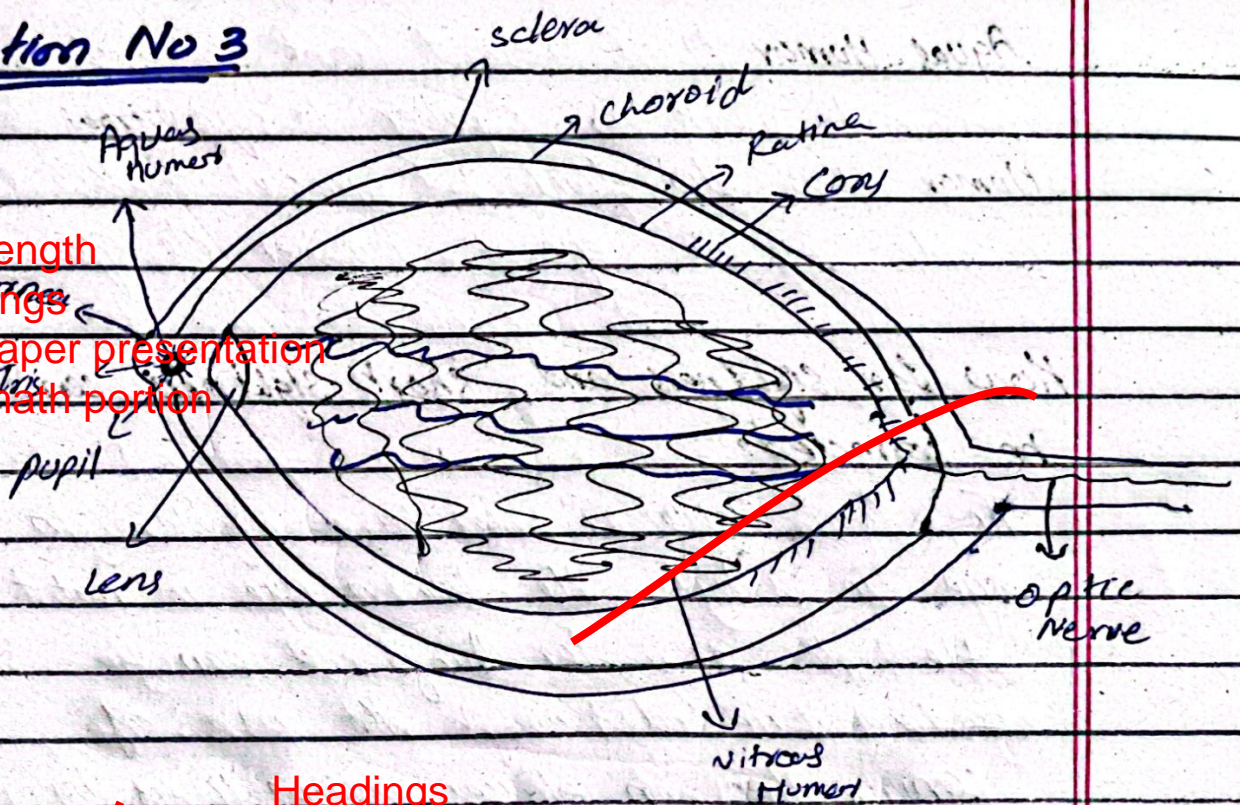 tion No 3
sclera
choroid
Ratina
Cons
Aquas
Humers
ength
ngs
aper presentation
Iris
nath portion
pupil
Lens
Optic
Nerve
Nitreous
Humers
Headings